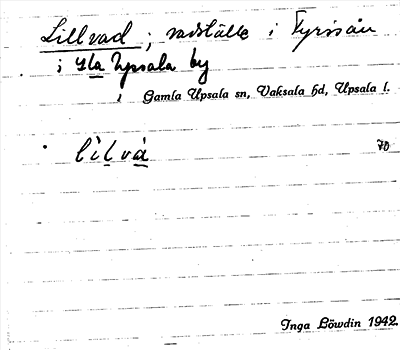 Lillvad ; vadställe i Fyrisån
i Gla Upsala by
i Gamla Upsala sn, Vaksala hd, Upsala l.
lìlvá 70
Inga Löwdin 1942.